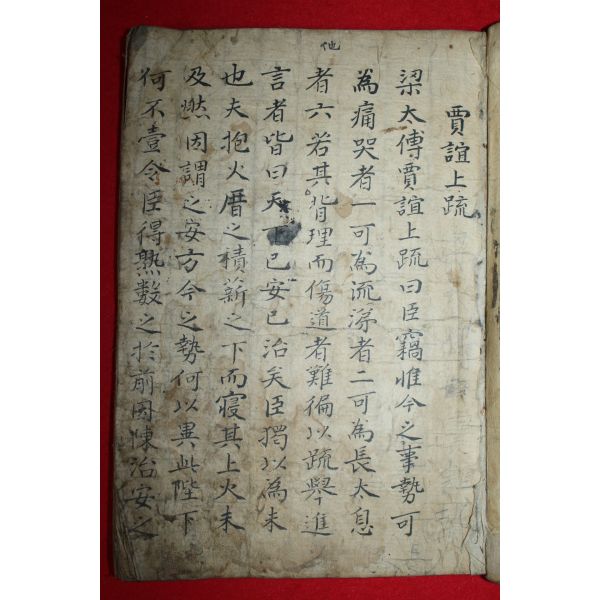 他
賈誼上疏
梁太傅賈誼上疏曰臣竊惟今之事勢可
為痛哭者一可為流涕者二可為長太息
者六若其背理而傷道者難徧以疏舉進
言者皆曰天下已安已治矣臣獨以為未
也夫抱火厝之積薪之下而寢其上火未
及燃因謂之安方今之勢何以異此陛下
何不壹令臣得熟數之於前因陳治安之